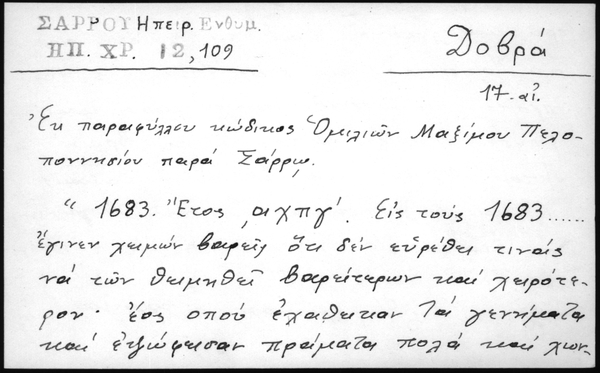 ΣΑΡΡΟΥ Ηπειρ. Ενθυμ.
ΗΠ. ΧΡ. 12, 109
Δοβρά
17. αἰ.
Ἐκ παραφύλλου κώδικος Ὁμιλιῶν Μαξίμου Πελο-
ποννησίου παρά Σάρρῳ.
" 1683. Ἔτος ͵αχπγ'. Εἰς τούς 1683......
ἔγινεν χειμών βαρεῖς ὅτι δέν εὗρέθει τινάς
νά τῶν θειμηθεῖ βαρείτερων καί χειρότε-
ρον· ἕος οπού ἐχαθεικαν τά γεννήματα
καί ἐτζώφεισαν πράματα πολά καί χων-